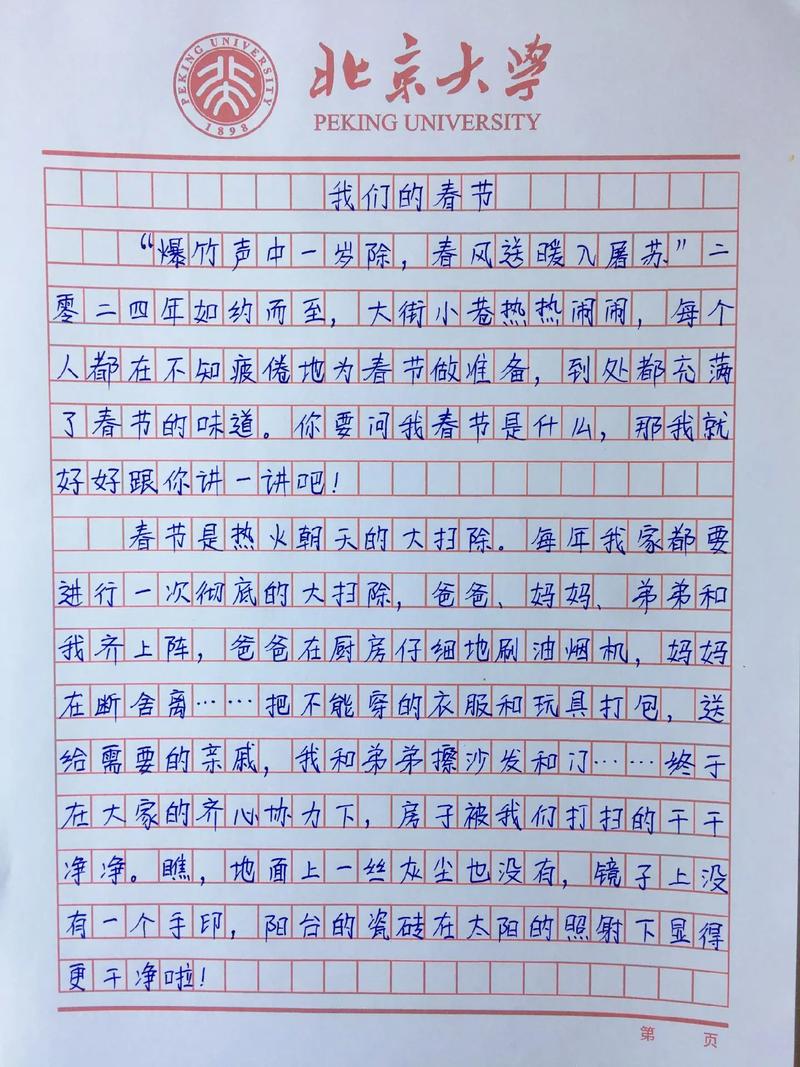 PEKING UNIVERSITY
1898
北京大学
PEKING UNIVERSITY
我们的春节
“爆竹声中一岁除，春风送暖入屠苏”二
零二四年如约而至，大街小巷热热闹闹，每个
人都在不知疲倦地为春节做准备，到处都充满
了春节的味道。你要问我春节是什么，那我就
好好跟你讲一讲吧！
春节是热火朝天的大扫除。每年我家都要
进行一次彻底的大扫除，爸爸、妈妈、弟弟和
我齐上阵，爸爸在厨房仔细地刷油烟机，妈妈
在断舍离……把不能穿的衣服和玩具打包，送
给需要的亲戚，我和弟弟擦沙发和门……终于
在大家的齐心协力下，房子被我们打扫的干干
净净。瞧，地面上一丝灰尘也没有，镜子上没
有一个手印，阳台的瓷砖在太阳的照射下显得
更干净啦！
第 页